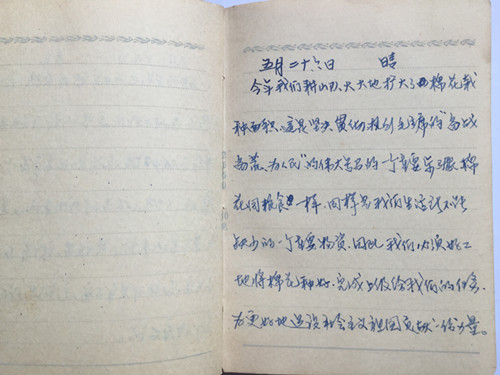 五月二十六日 晴
今年我们耕山队大大地扩大了棉花栽
种面积。这是坚决贯彻执行毛主席的"备战
备荒、为人民"的伟大号召的一个重要 棉
花同粮食一样,同样是我们生活该不能
缺少的一个重要物资。因此我们必须好好
地将棉花种好,完成上级给我们的任务,
为更好地建设社会主义祖国贡献一份力量。